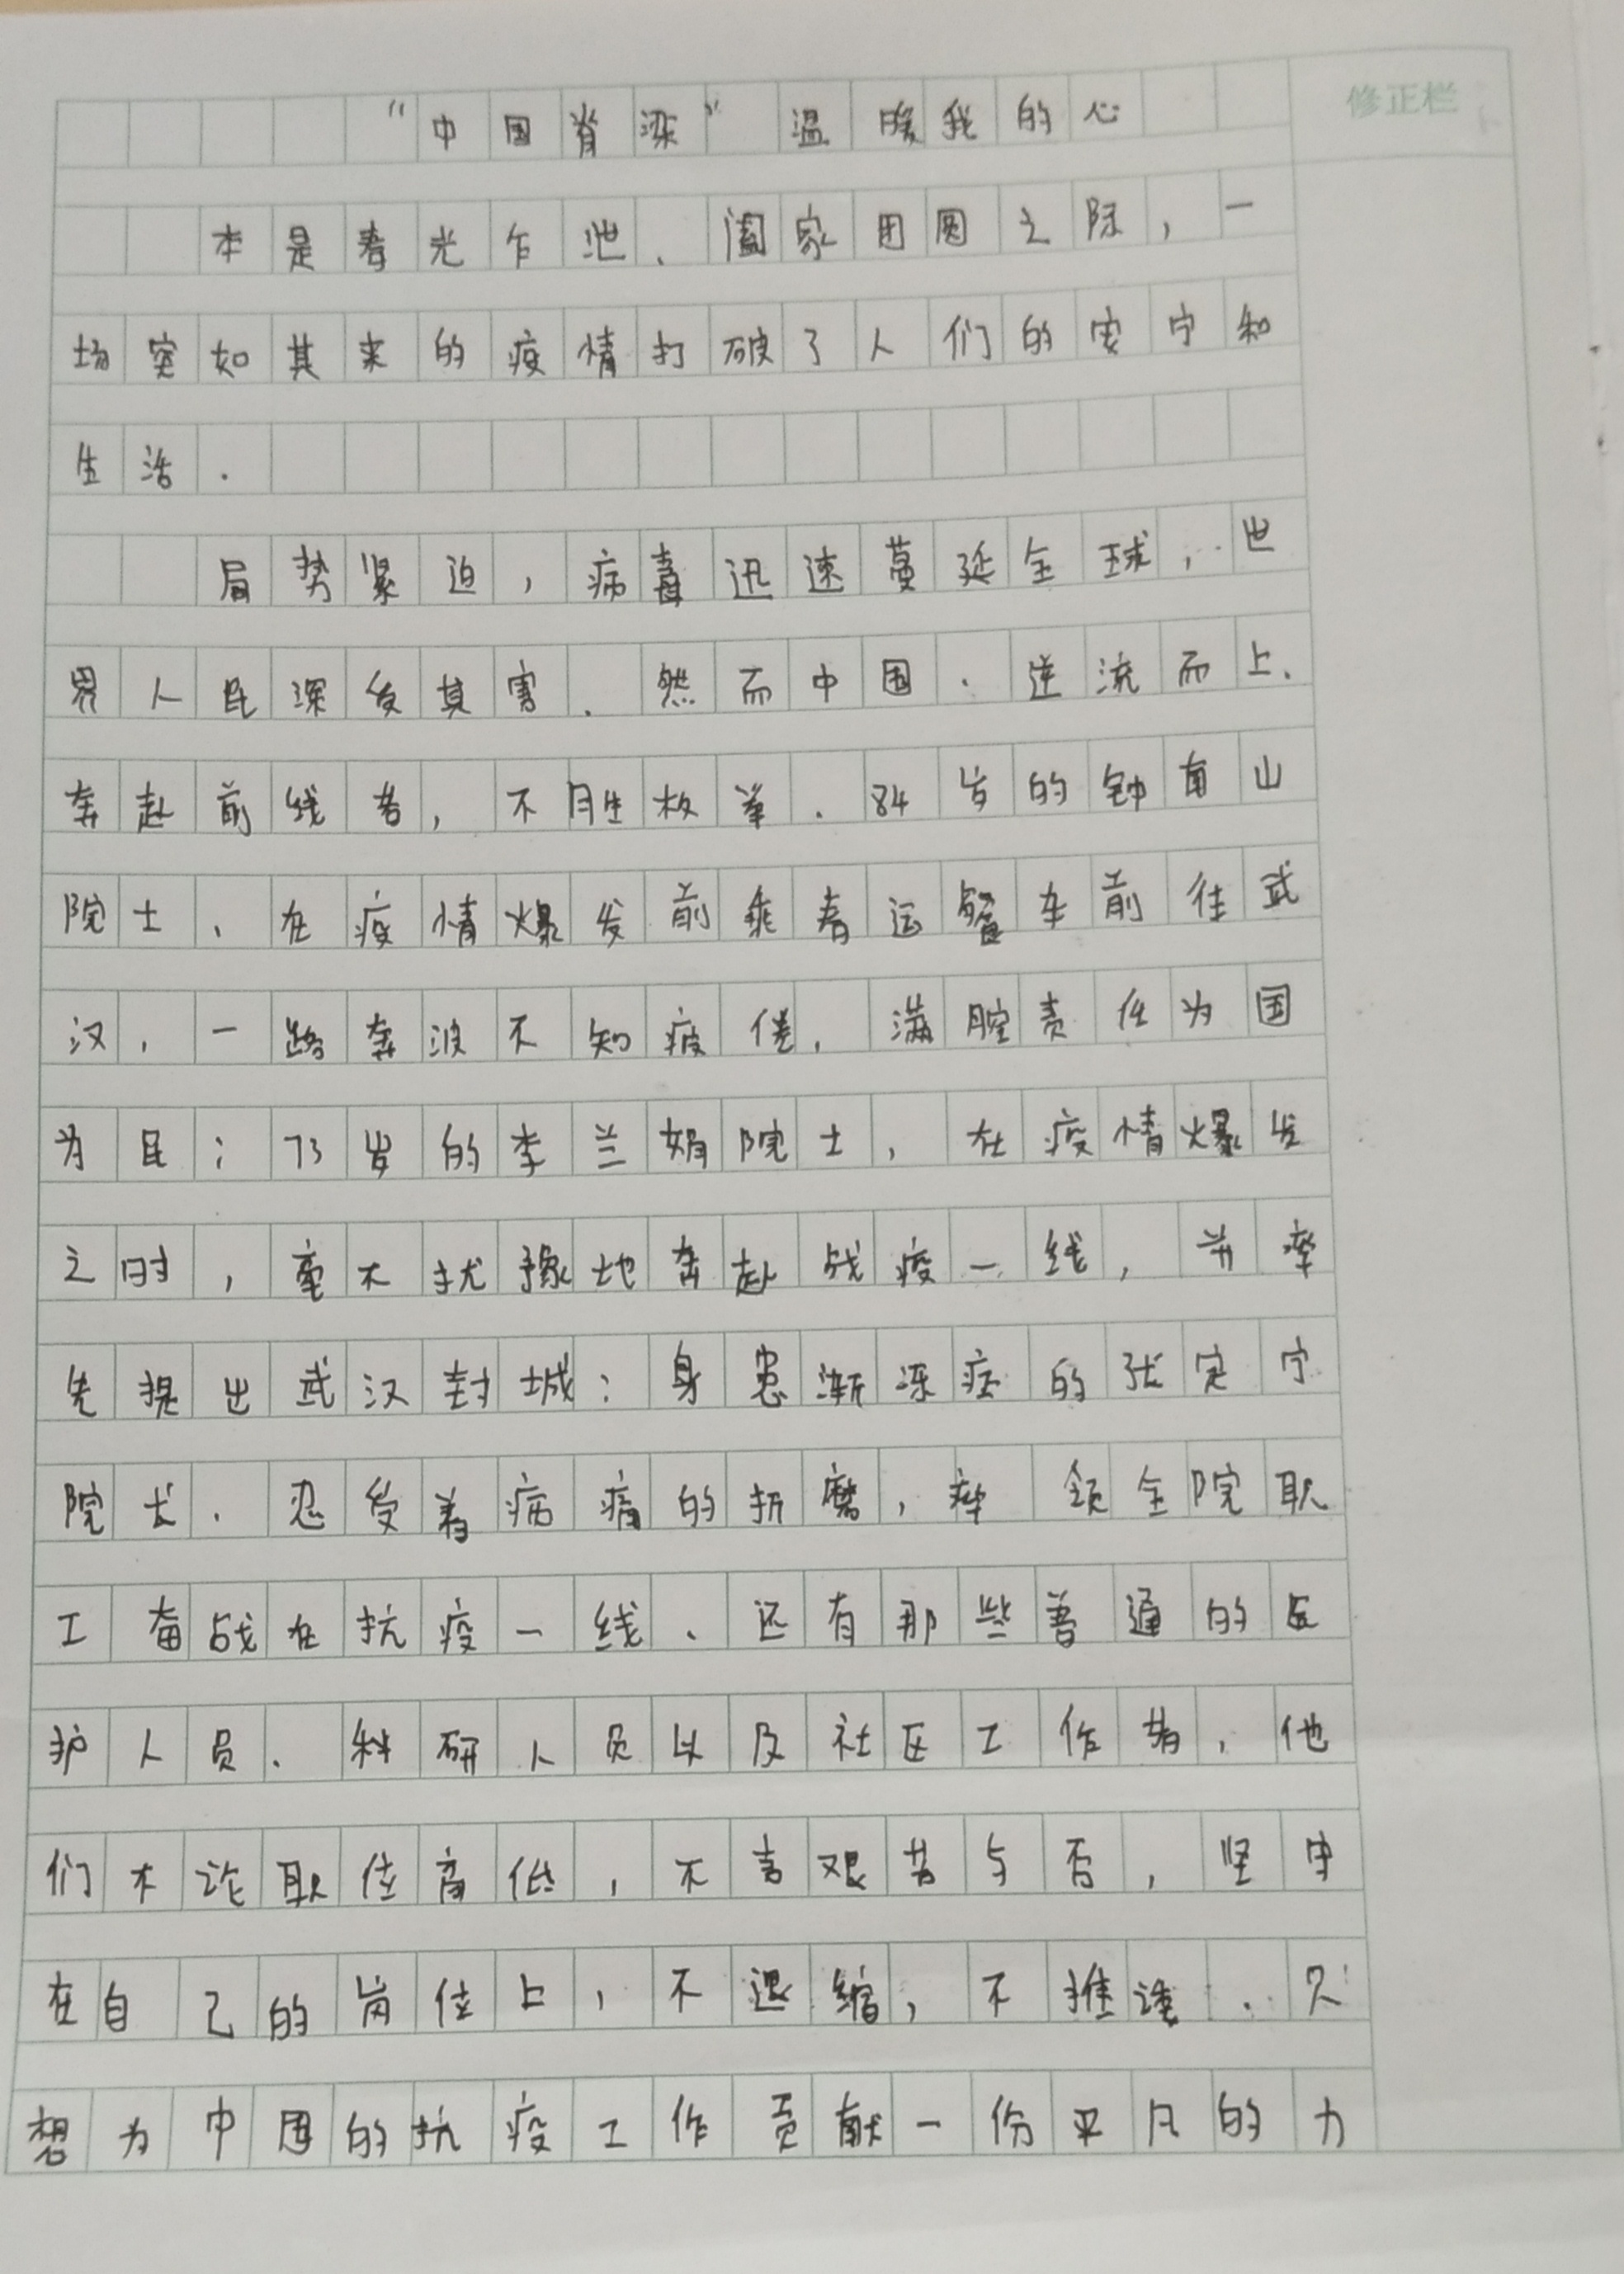 “中国脊梁”温暖我的心
修正栏
本是春光乍泄、阖家团圆之际，一
场突如其来的疫情打破了人们的安宁和
生活.
局势紧迫，病毒迅速蔓延全球，世
界人民深受其害.然而中国.逆流而上.
奔赴前线者，不胜枚举.84岁的钟南山
院士、在疫情爆发前乘春运餐车前往武
汉，一路奔波不知疲倦，满腔责任为国
为民；73岁的李兰娟院士，在疫情爆发
之时，毫不犹豫地奔赴战疫一线，并率
先提出武汉封城；身患渐冻症的张定宇
院长.忍受着病痛的折磨，率领全院职
工奋战在抗疫一线、还有那些普通的医
护人员.科研人员以及社区工作者，他
们不论职位高低，不言艰苦与否，坚守
在自己的岗位上，不退缩，不推诿.只
想为中国的抗疫工作贡献一份平凡的力